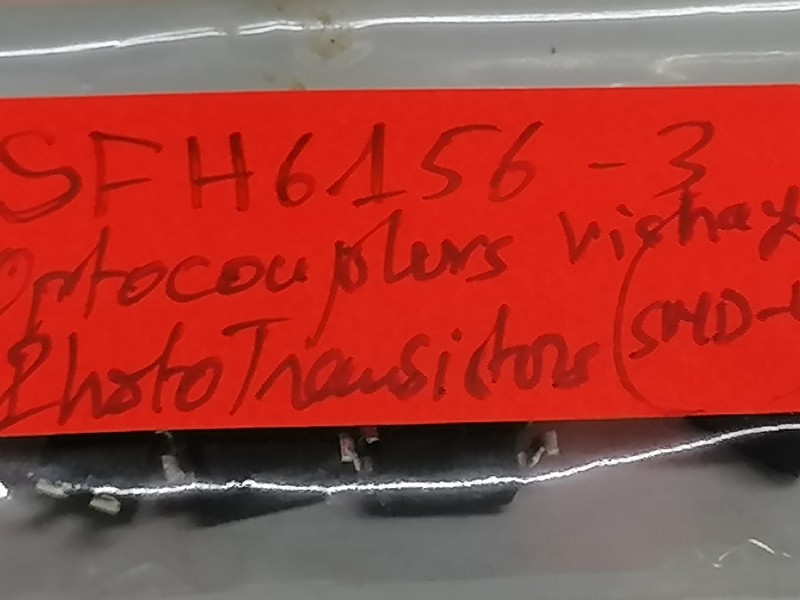 SFH6156-3
Optocouplers Vishay
PhotoTransistors (SMD-4